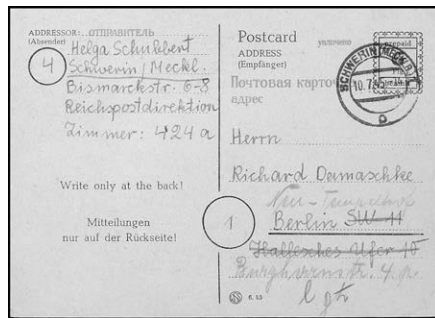 ADDRESSOR: ОТПРАВИТЕЛЬ
(Absender)
Helga Schubbert
4
Schwerin/Meckl.
Bismarckstr. 6-8
Reichspostdirektion
Zimmer: 424 a
Write only at the back!
Mitteilungen
nur auf der Rückseite!
Postcard
уплачено
ADDRESS
(Empfänger)
Почтовая карточка
адрес
prepaid
SCHWERIN (MECKLB)
10.7.45
Herrn
Richard Damaschke
Neu-Tempelhof
1
Berlin SW 11
Hallesches Ufer 10
6. 45